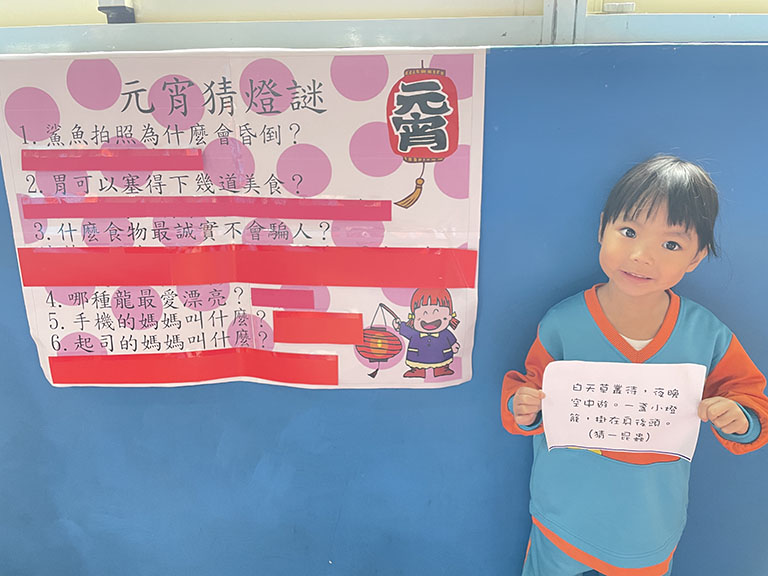 元宵猜燈謎
元宵
1.鯊魚拍照為什麼會昏倒？
2.胃可以塞得下幾道美食？
3.什麼食物最誠實不會騙人？
4.哪種龍最愛漂亮？
5.手機的媽媽叫什麼？
6.起司的媽媽叫什麼？
白天草裏待，夜晚
空中遊。一盞小燈
籠，掛在身後頭。
(猜一昆蟲)